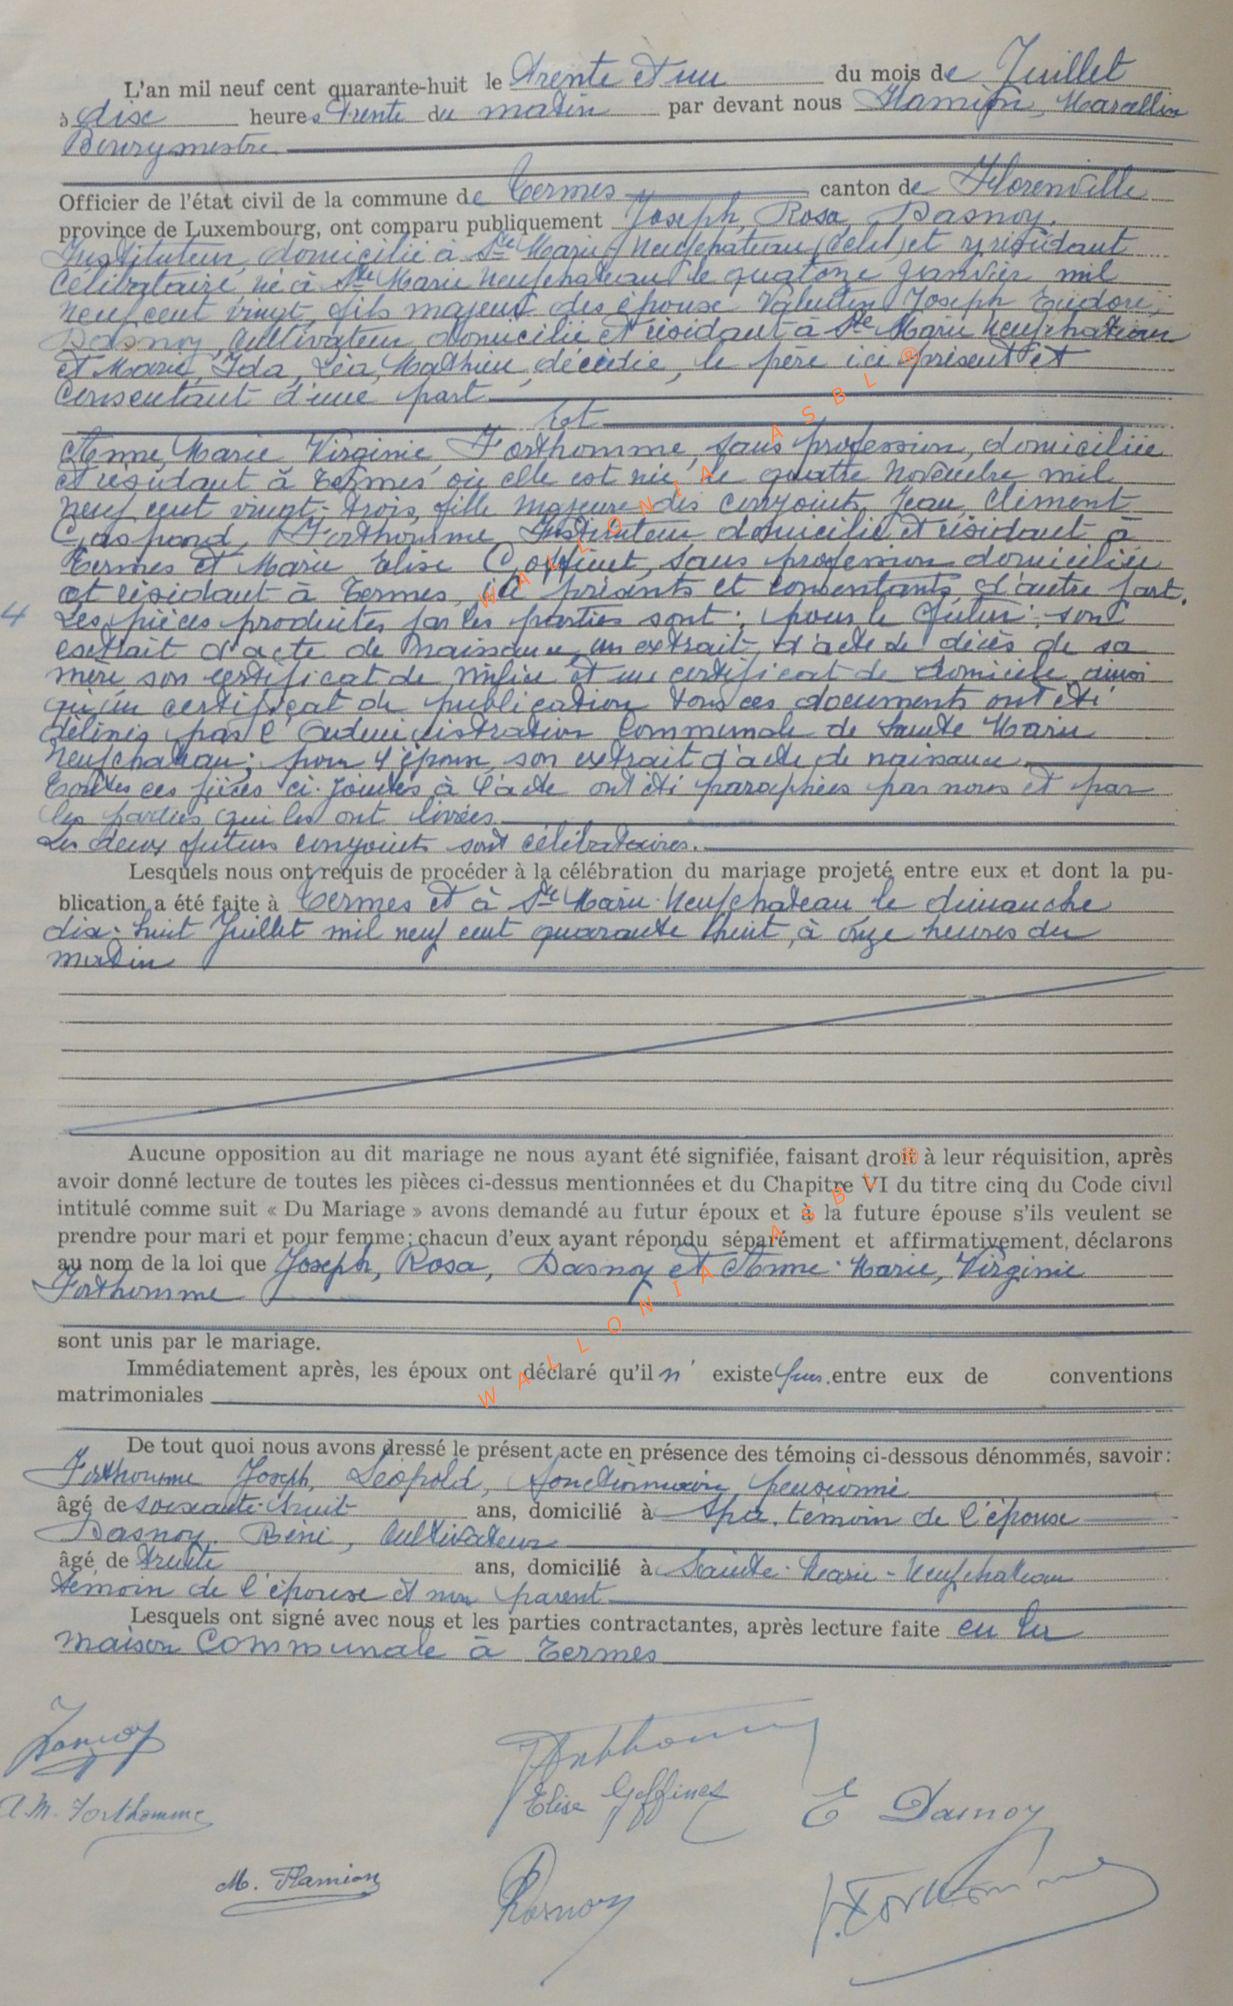 L'an mil neuf cent quarante-huit le trente et un du mois de Juillet
à dix heures trente du matin par devant nous Flamion, Marcellin
Bourgmestre
Officier de l'état civil de la commune de Termes canton de Florenville
province de Luxembourg, ont comparu publiquement Joseph, Rosa, Dasnoy,
Instituteur, domicilié à Ste Marie Neufchateau et y résidant
Célibataire, né à Ste Marie Neufchateau le quatorze janvier mil
neuf cent vingt, fils majeur des époux Valentin Joseph Isidore,
Dasnoy, Cultivateur domicilié et résidant à Ste Marie Neufchateau
et Marie, Ida, Léa, Mathieu, décédée, le père ici présent et
consentant d'une part
Et
Anne, Marie Virginie, Forthomme, sans profession, domiciliée
et résidant à Termes où elle est née, le quatre novembre mil
neuf cent vingt-trois, fille majeure des conjoints, Jean, Clément
Gaspard, Forthomme, Instituteur domicilié et résidant à
Termes et Marie Elise Goffinet, sans profession domiciliée
et résidant à Termes, ici présents et consentants, d'autre part.
4 Les pièces produites par les parties sont : pour le futur : son
extrait d'acte de naissance, un extrait d'acte de décès de sa
mère, son certificat de milice et un certificat de domicile ainsi
qu'un certificat de publication tous ces documents ont été
délivrés par l'administration Communale de Sainte Marie
Neufchateau ; pour l'épouse, son extrait d'acte de naissance
Toutes ces pièces ci-jointes à l'acte ont été paraphées par nous et par
les parties qui les ont livrées
Les deux futurs conjoints sont célibataires.
Lesquels nous ont requis de procéder à la célébration du mariage projeté entre eux et dont la pu-
blication a été faite à Termes et à Ste Marie-Neufchateau le dimanche
dix-huit Juillet mil neuf cent quarante huit, à onze heures du
matin
Aucune opposition au dit mariage ne nous ayant été signifiée, faisant droit à leur réquisition, après
avoir donné lecture de toutes les pièces ci-dessus mentionnées et du Chapitre VI du titre cinq du Code civil
intitulé comme suit « Du Mariage » avons demandé au futur époux et à la future épouse s'ils veulent se
prendre pour mari et pour femme ; chacun d'eux ayant répondu séparément et affirmativement, déclarons
au nom de la loi que Joseph, Rosa, Dasnoy et Anne-Marie, Virginie
Forthomme
sont unis par le mariage.
Immédiatement après, les époux ont déclaré qu'il n' existe pas entre eux de conventions
matrimoniales
De tout quoi nous avons dressé le présent acte en présence des témoins ci-dessous dénommés, savoir :
Forthomme Joseph, Léopold, fonctionnaire, pensionné
âgé de soixante-huit ans, domicilié à Spa, témoin de l'épouse
Dasnoy, René, Cultivateur
âgé de trente ans, domicilié à Sainte-Marie-Neufchateau
témoin de l'épouse et non parent
Lesquels ont signé avec nous et les parties contractantes, après lecture faite en la
maison Communale à Termes
Dasnoy
Forthomme
A.M. Forthomme
Elise Goffinet
Dasnoy
M. Flamion
Dasnoy
J. Forthomme
WALLONIA ASBL ®
WALLONIA ASBL ®